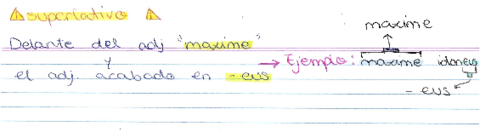 ⚠superlativo⚠
maxime
Delante del adj "maxime"
y
→ Ejemplo: maxime idoneus
el adj. acabado en -eus
-eus